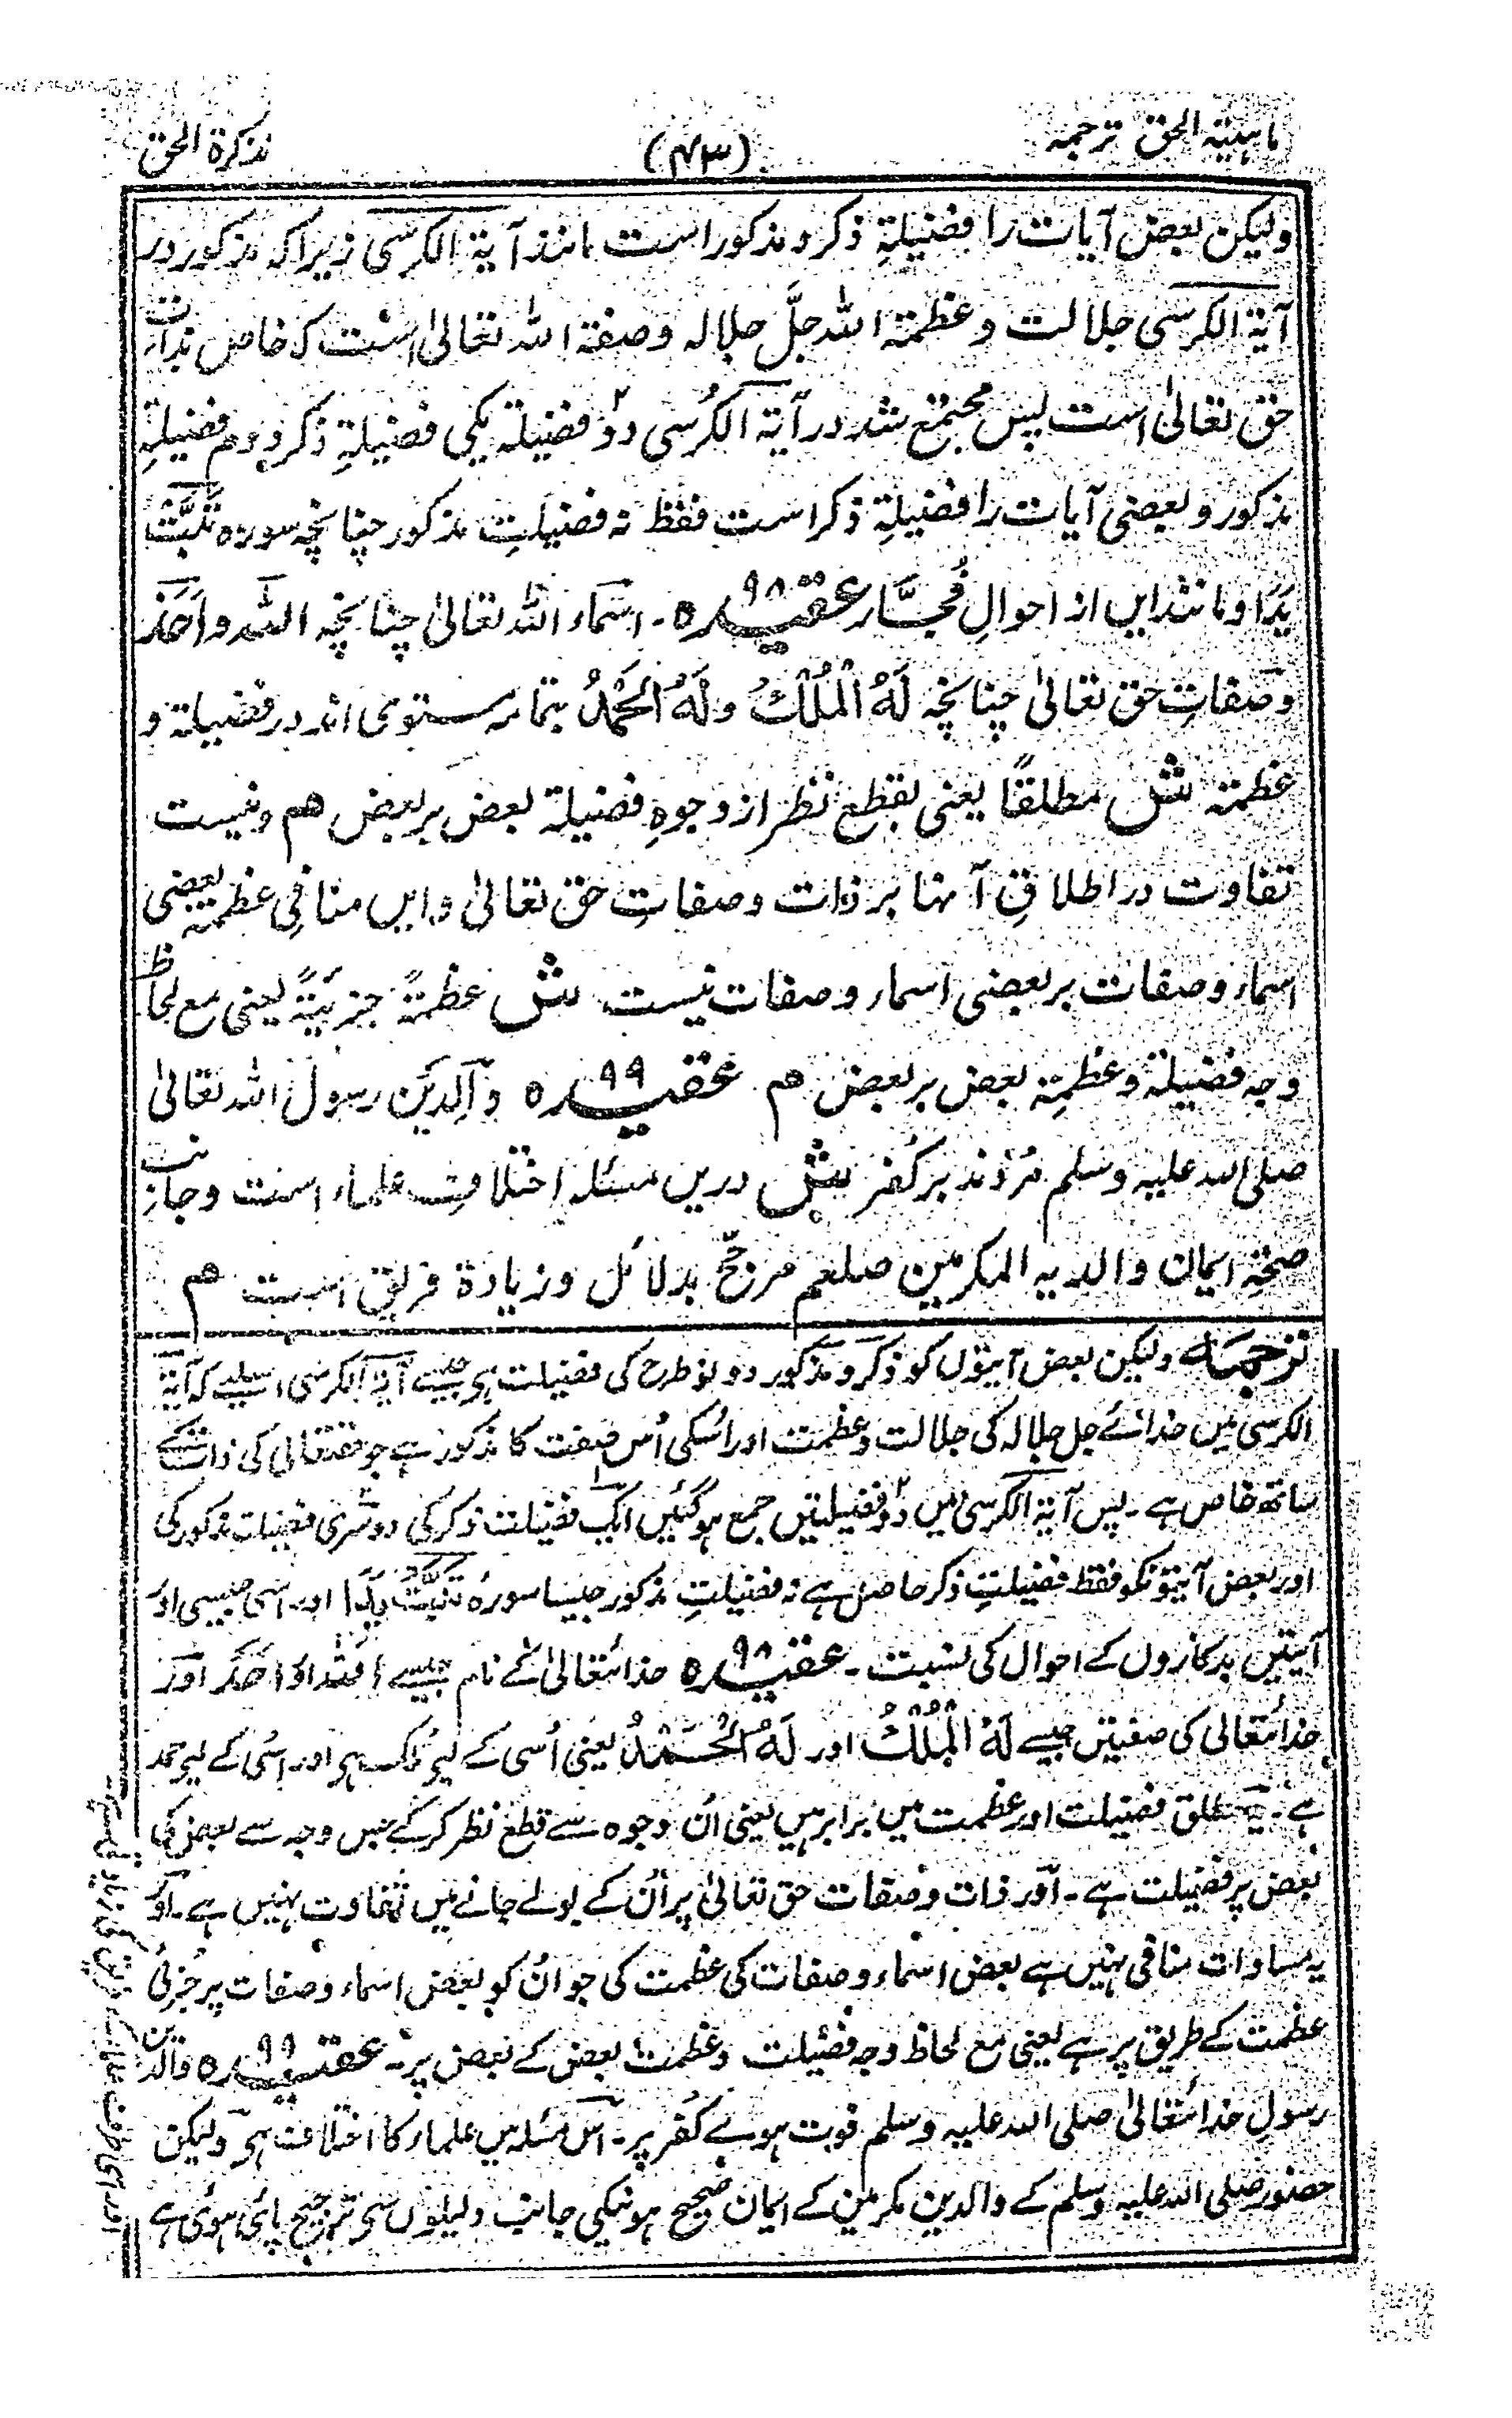 ماہیۃ الحق ترجمہ
(۷۳)
تذکرۃ الحق
ولیکن بعض آیات را فضیلۃِ ذکر و مذکور است مانند آیۃ الکرسی زیرا کہ مذکور در
آیۃ الکرسی جلالت و عظمۃ اللہ جلَّ جلالہ وصفۃ اللہ تعالیٰ است کہ خاص بذات
حق تعالیٰ است پس مجتمع شد در آیۃ الکرسی دو۲ فضیلۃ یکی فضیلۃِ ذکر دوم فضیلۃِ
مذکور و بعضی آیات را فضیلۃِ ذکر است فقط نہ فضیلتِ مذکور چنانچہ سورہ تَبَّتْ
یَدَا و مانند ایں از احوالِ فُجَّار عقیدہ ۹۸ ۔ اسماء اللہ تعالیٰ چنانچہ اللہ و اَحَد
وصفاتِ حق تعالیٰ چنانچہ لَہُ الْمُلْکُ ولَہُ الْحَمْدُ تمامہ مستوی اند در فضیلۃ و
عظمۃ ش مطلقًا یعنی بقطع نظر از وجوہِ فضیلۃ بعض بر بعض ھم ونیست
تفاوت در اطلاقِ آنہا بر ذات وصفاتِ حق تعالیٰ و ایں منافیِ عظمۃ بعضی
اسماء وصفات بر بعضی اسماء وصفات نیست ش عظمۃً جزئیۃً یعنی مع لحاظ
وجہ فضیلۃ و عظمۃِ بعض بر بعض ھم عقیدہ ۹۹ وَالِدَین رسول اللہ تعالیٰ
صلی اللہ علیہ وسلم مُرْدند بر کُفر ش دریں مسئلہ اختلافِ علماء است وجانب
صحّۃِ ایمان والدیہ المکرمین صلعم مرجّح بدلائل وزیادۃ فریق است ھم
ترجمہ ولیکن بعض آیتوں کو ذکر و مذکور دونو طرح کی فضیلت ہی جیسے آیۃ الکرسی اسلیے کہ آیۃ
الکرسی میں خدائے جل جلالہ کی جلالت و عظمت اور اُسکی اُس صفت کا مذکور ہے جو حقتعالی کی ذات کے
ساتھ خاص ہے ۔ پس آیۃ الکرسی میں دو۲ فضیلتیں جمع ہوگئیں ایک فضیلت ذکر کی دوسری فضیلت مذکور کی
اور بعض آیتونکو فقط فضیلتِ ذکر حاصل ہے نہ فضیلتِ مذکور جیسا سورہ تَبَّتْ یَدَا اور اسی جیسی اور
آیتیں بدکاروں کے احوال کی نسبت ۔ عقیدہ ۹۸ خدائتعالیٰ کے نام جیسے اللہ اور احَد اور
خدائتعالی کی صفتیں جیسے لَہُ الْمُلْکُ اور لَہُ الْحَمْدُ یعنی اُسی کے لیے ملک ہی اور اسی کے لیے حمد
ہے ۔ یہ مطلق فضیلت اور عظمت میں برابر ہیں یعنی اُن وجوہ سے قطع نظر کرکے جس وجہ سے بعض کی
بعض پر فضیلت ہے ۔ اور ذات وصفات حق تعالیٰ پر اُن کے بولے جانے میں تفاوت نہیں ہے ۔ اور
یہ مساوات منافی نہیں ہے بعض اسماء وصفات کی عظمت کی جو اُن کو بعض اسماء وصفات پر جزئی
عظمت کے طریق پر ہے یعنی مع لحاظ وجہ فضیلت و عظمت بعض کے بعض پر ۔ عقیدہ ۹۹ والدین
رسولِ خدائتعالیٰ صلی اللہ علیہ وسلم فوت ہوئے کفر پر ۔ اس مسئلہ میں علماء کا اختلاف ہی ولیکن
حضور صلی اللہ علیہ وسلم کے والدین مکرمین کے ایمان صحیح ہونیکی جانب دلیلوں سی ترجیح پائی ہوئی ہے
اور اسی طرف علماء کے فریق کی زیادتی